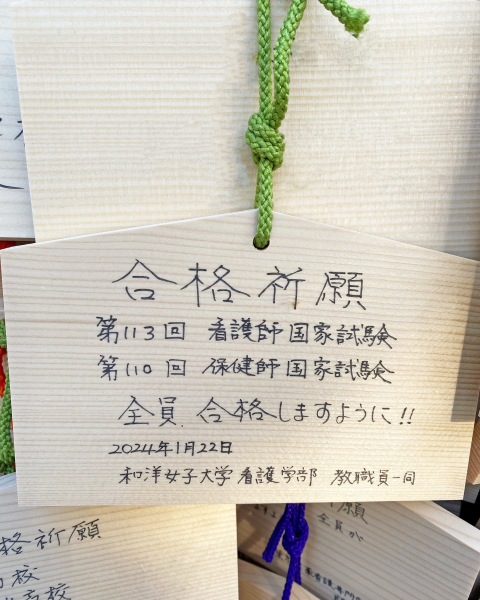 合格祈願
第113回 看護師国家試験
第110回 保健師国家試験
全員 合格しますように!!
2024年1月22日
和洋女子大学 看護学部 教職員一同
格祈願
校
高校
祈願
全員が